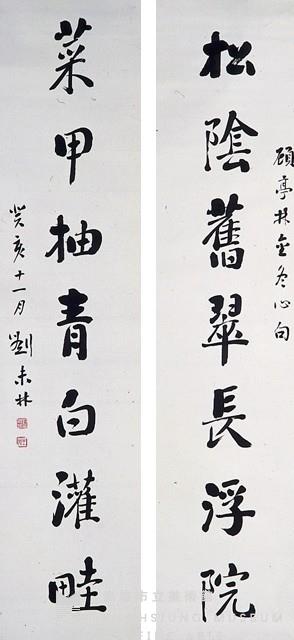 顧亭林金冬心句
松陰舊翠長浮院
菜甲抽青白灌畦
癸亥十一月劉未林
市立美術
HSIUNG MUSEUM